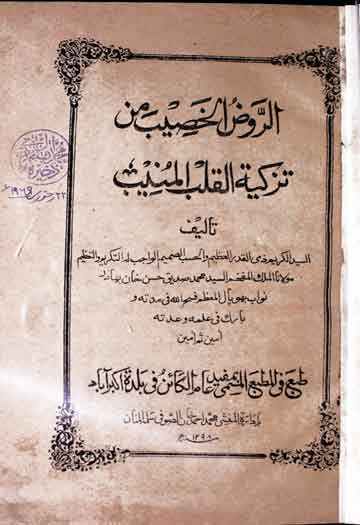 الروض الخصيب من
تزكية القلب المنيب
تأليف
السيد الكريم ذى القدر العظيم والحسب الصميم الواجب له التكريم والتعظيم
مولانا الملك المفخم السيد محمد صديق حسن خان بهادر
نواب بهوپال المعظم فسح الله فى مدته و
بارك فى علمه وعدته
آمين ثم آمين
طبع فى المطبع المسمى بمفيد عام الكائن فى بلدة اكبرآباد
محمد خان الصوفى سلمه المنان
١٢٩٨